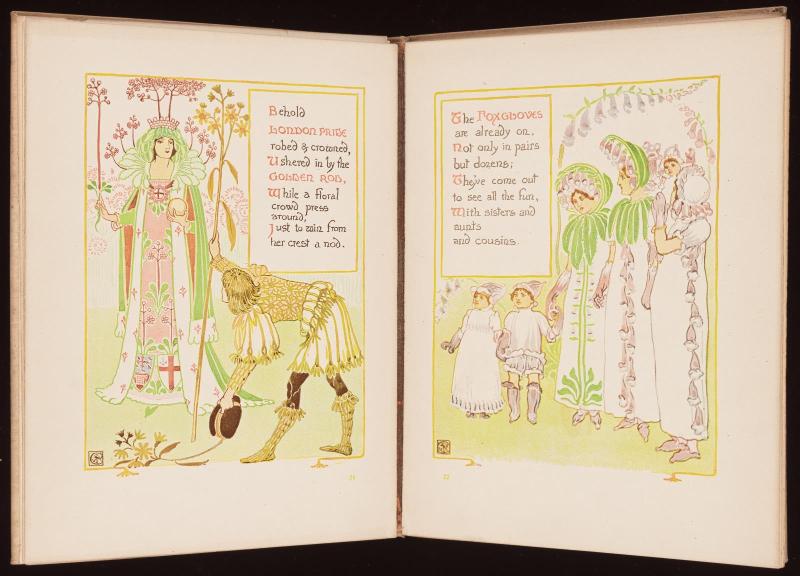 Behold
LONDON PRIDE
robed & crowned,
Ushered in by the
GOLDEN ROD,
While a floral
crowd press
around,
Just to win from
her crest a nod.
21
The FOXGLOVES
are already on,
Not only in pairs
but dozens;
They've come out
to see all the fun,
With sisters and
aunts
and cousins.
22